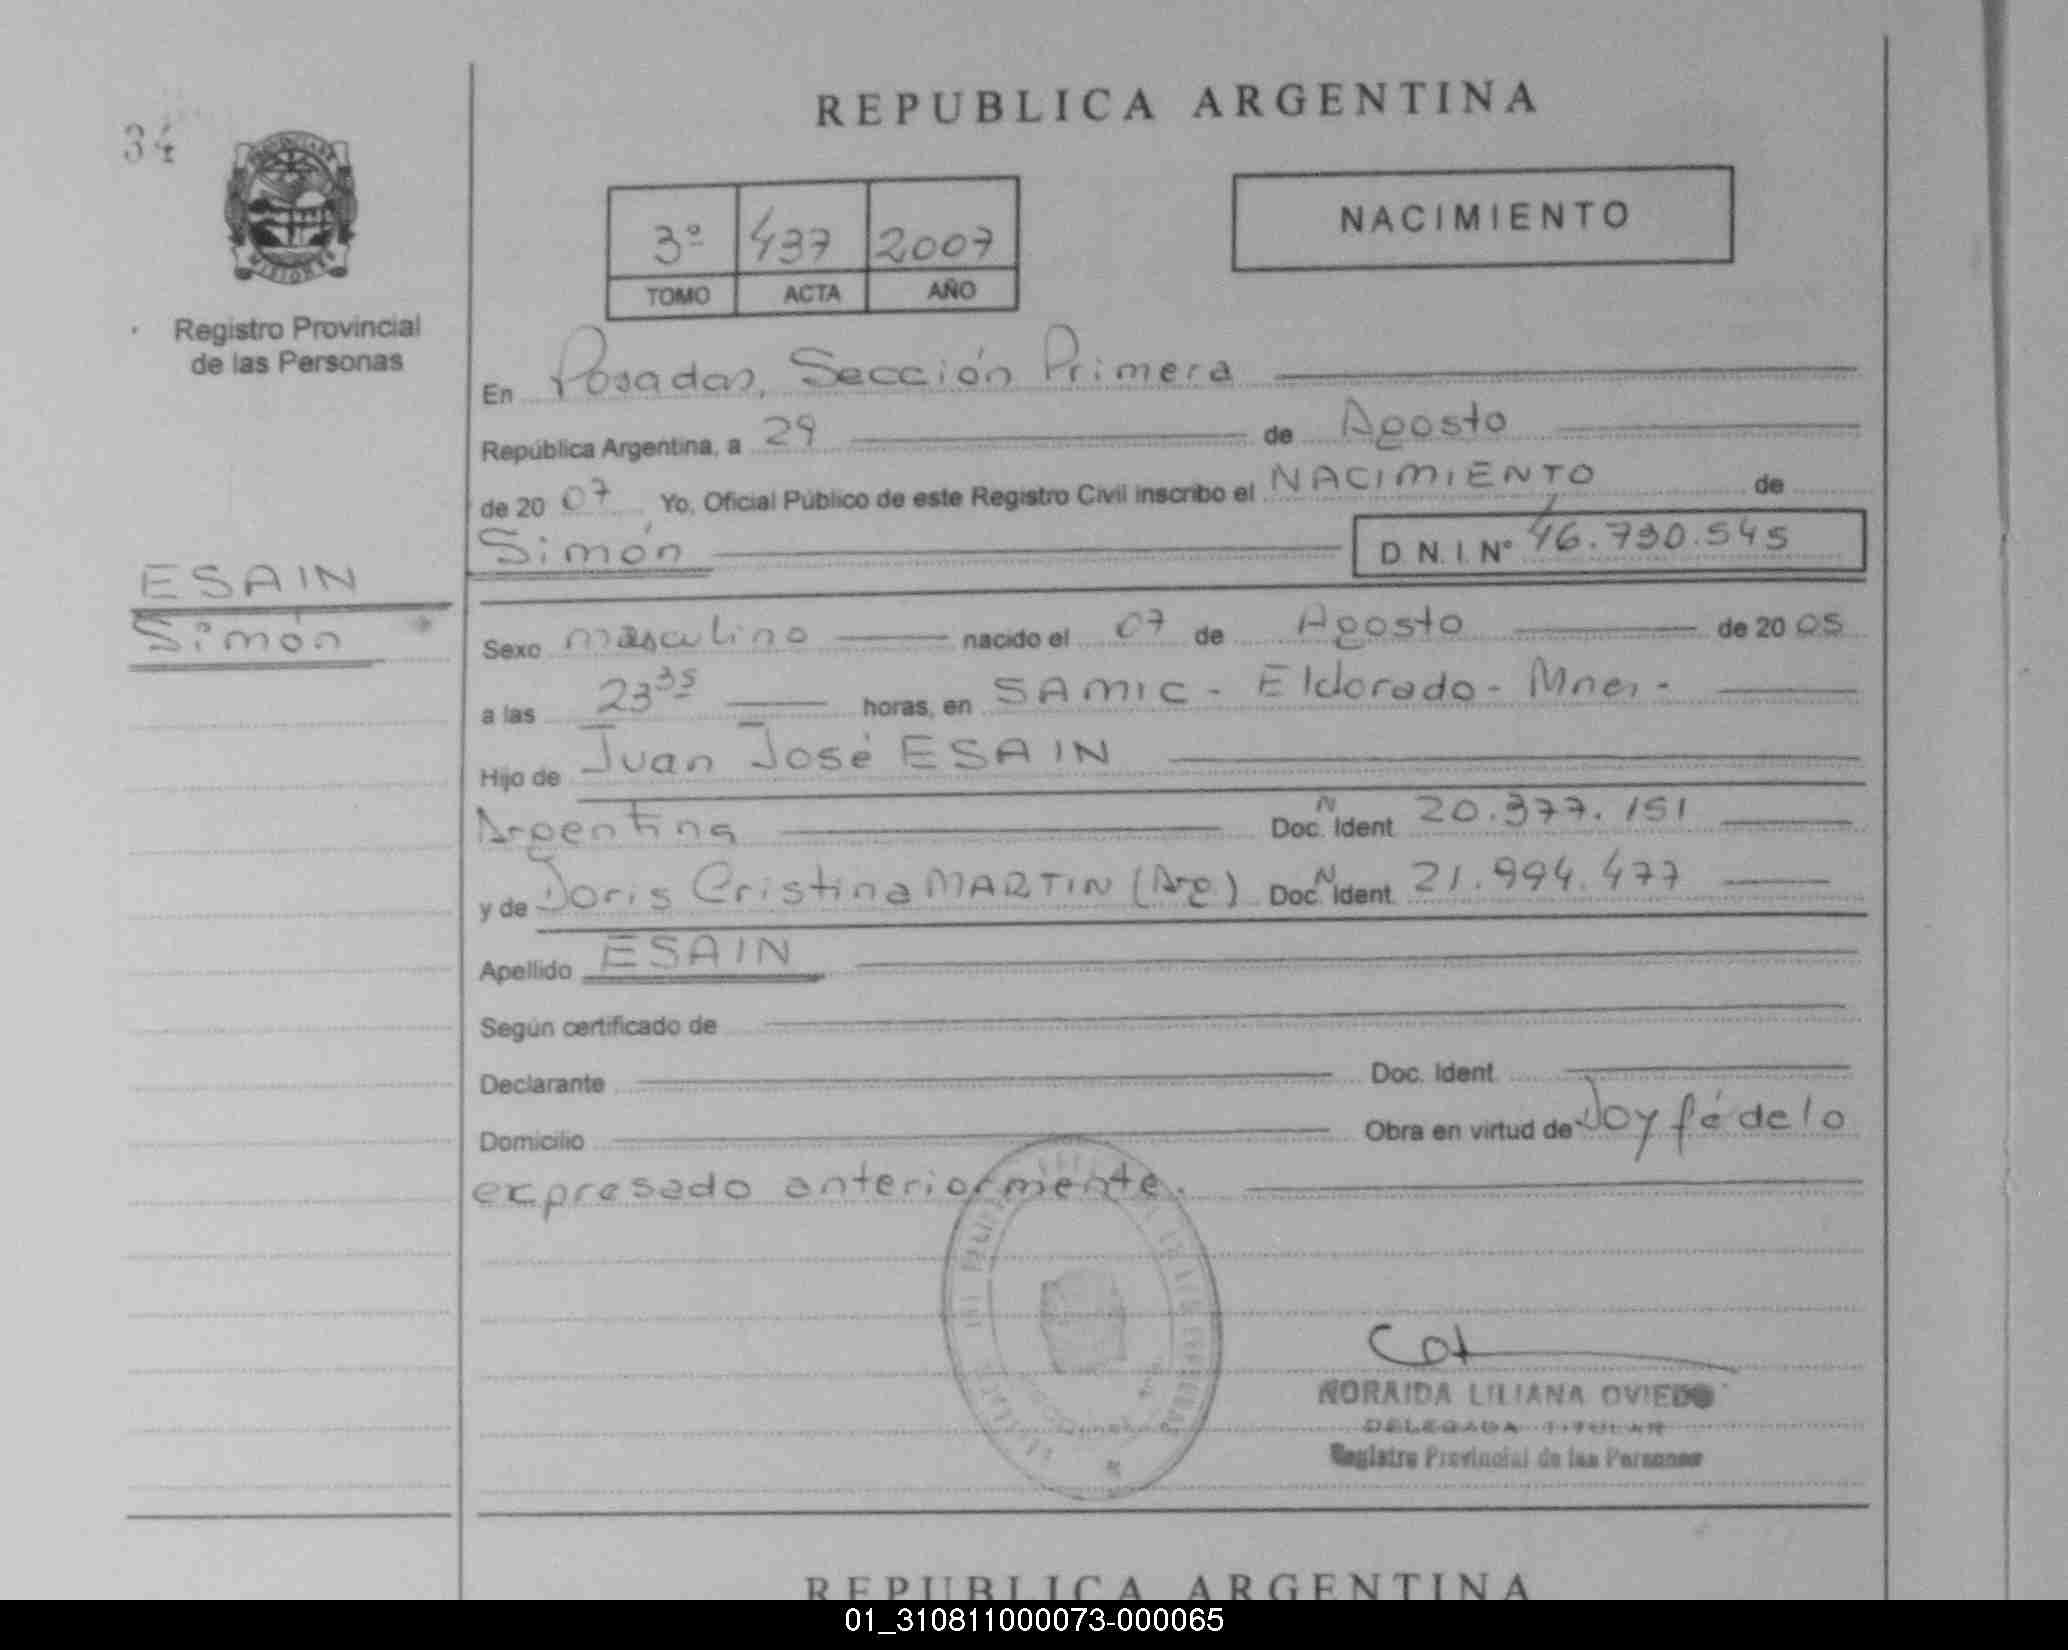 REPUBLICA ARGENTINA
34
PROVINCIA DE
MISIONES
Registro Provincial
de las Personas
3º 437 2007
TOMO ACTA AÑO
NACIMIENTO
En Posadas, Sección Primera
República Argentina, a 29 de Agosto
de 2007 Yo, Oficial Público de este Registro Civil inscribo el NACIMIENTO de
Simón D. N. I. Nº 46.730.545
ESAIN
Simón
Sexo masculino nacido el 07 de Agosto de 2005
a las 23 35 horas, en SAMIC - Eldorado - Mnes -
Hijo de Juan José ESAIN
Argentina Doc. N Ident 20.377.151
y de Doris Cristina MARTIN (Arg.) Doc. N Ident. 21.994.477
Apellido ESAIN
Según certificado de
Declarante Doc. Ident.
Domicilio Obra en virtud de Doy fé de lo
expresado anteriormente.
NORAIDA LILIANA OVIEDO
DELEGADA TITULAR
Registro Provincial de las Personas
REPUBLICA ARGENTINA
01_310811000073-000065